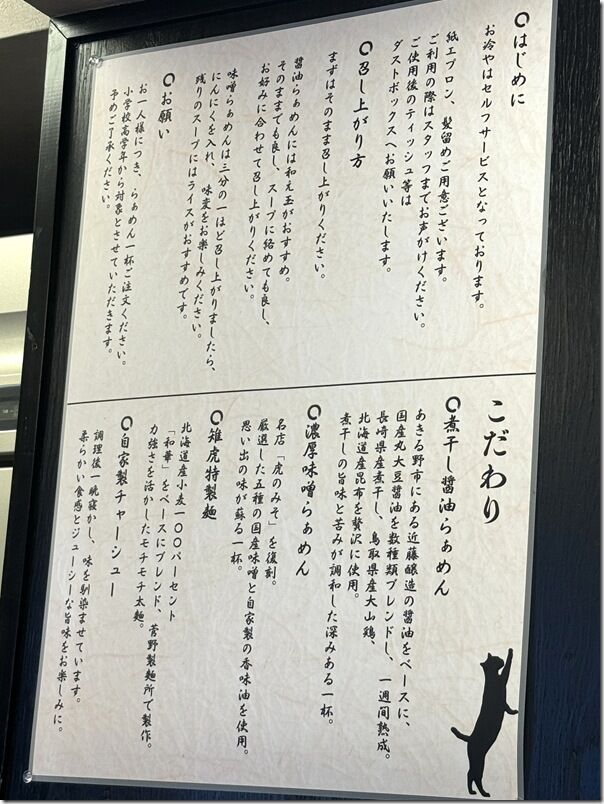 はじめに
お冷やはセルフサービスとなっております。
紙エプロン、髪留めご用意ございます。
ご利用の際はスタッフまでお声がけください。
ご使用後のティッシュ等は
ダストボックスへお願いいたします。
召し上がり方
まずはそのまま召し上がりください。
醤油らぁめんには和え玉がおすすめ。
そのままでも良し、スープに絡めても良し、
お好みに合わせて召し上がりください。
味噌らぁめんは三分の一ほど召し上がりましたら、
にんにくを入れ、味変をお楽しみください。
残りのスープにはライスがおすすめです。
お願い
お一人様につき、らぁめん一杯ご注文ください。
小学校高学年から対象とさせていただきます。
予めご了承ください。
こだわり
煮干し醤油らぁめん
あきる野市にある近藤醸造の醤油をベースに、
国産丸大豆醤油を数種類ブレンドし、一週間熟成。
長崎県産煮干し、鳥取県産大山鶏、
北海道産昆布を贅沢に使用。
煮干しの旨味と苦みが調和した深みある一杯。
濃厚味噌らぁめん
名店「虎のみそ」を復刻。
厳選した五種の国産味噌と自家製の香味油を使用。
思い出の味が蘇る一杯。
雉虎特製麺
北海道産小麦一〇〇パーセント
「和華」をベースにブレンド、菅野製麺所で製作。
力強さを活かしたモチモチ太麺。
自家製チャーシュー
調理後一晩寝かし、味を馴染ませています。
柔らかい食感とジューシーな旨味をお楽しみに。